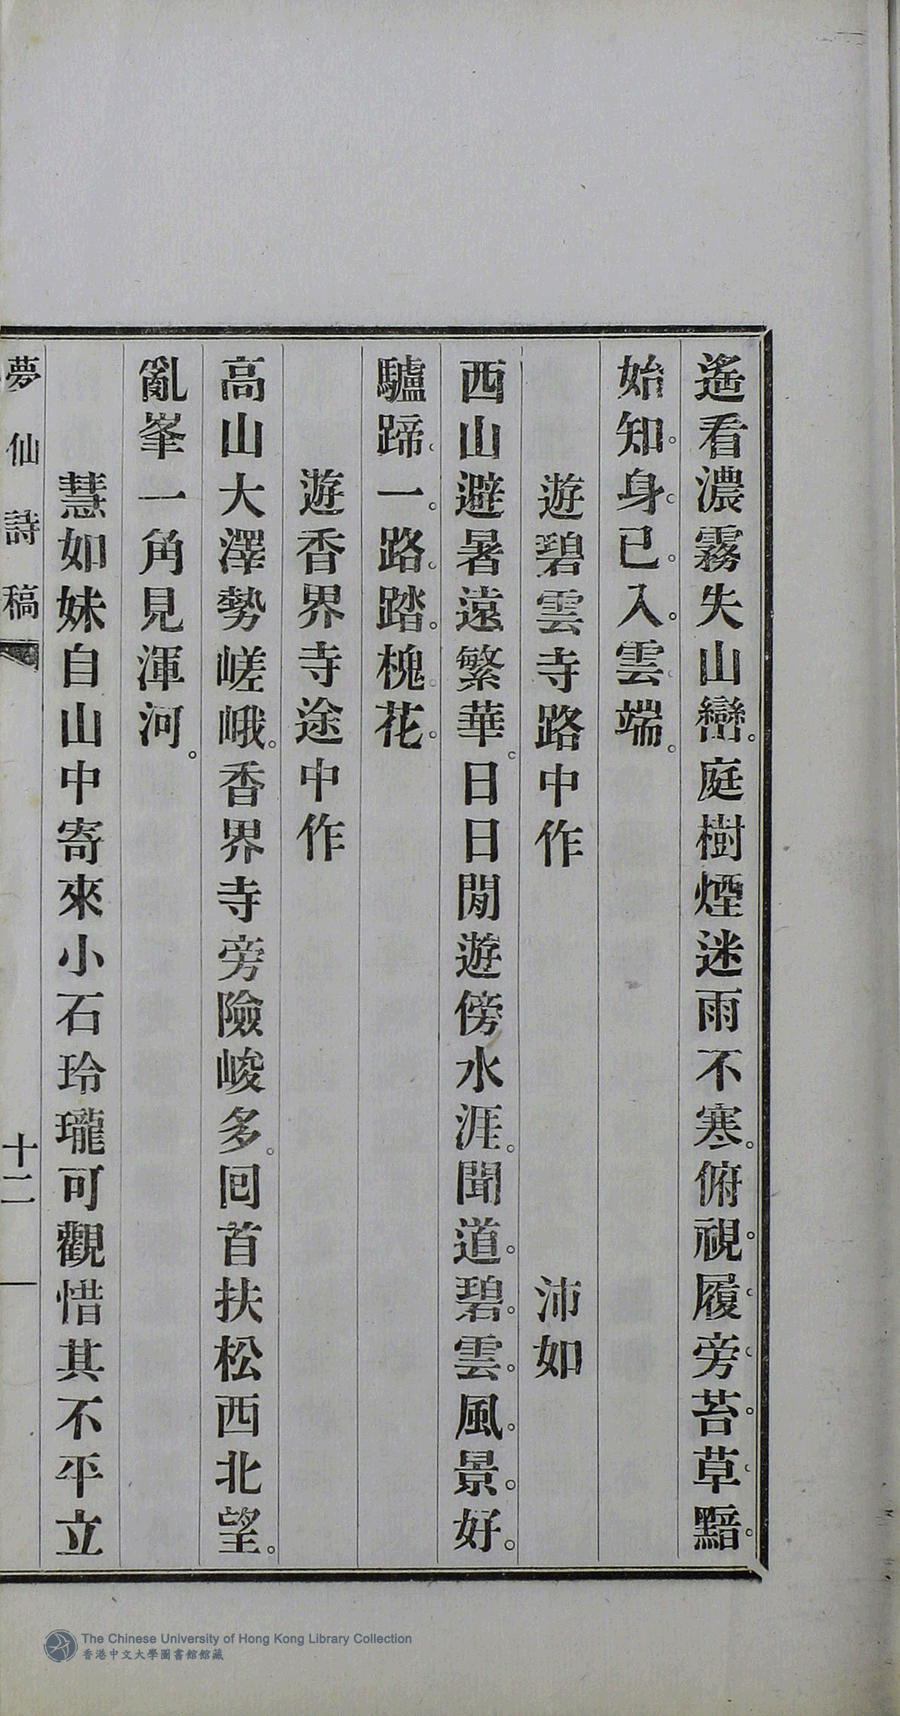 遙看濃霧失山巒。庭樹煙迷雨不寒。俯視。履。旁。苔。草。黯。
始知。身。已。入。雲。端。
遊碧雲寺路中作 沛如
西山避暑遠繁華。日日閒遊傍水涯。聞道。碧。雲。風。景。好。
驢蹄。一。路。踏。槐。花。
遊香界寺途中作
高山大澤勢嵯峨。香界寺旁險峻多。回首扶松西北望。
亂峯一角見渾河。
慧如妹自山中寄來小石玲瓏可觀惜其不平立
夢仙詩稿 十二
The Chinese University of Hong Kong Library Collection
香港中文大學圖書館館藏